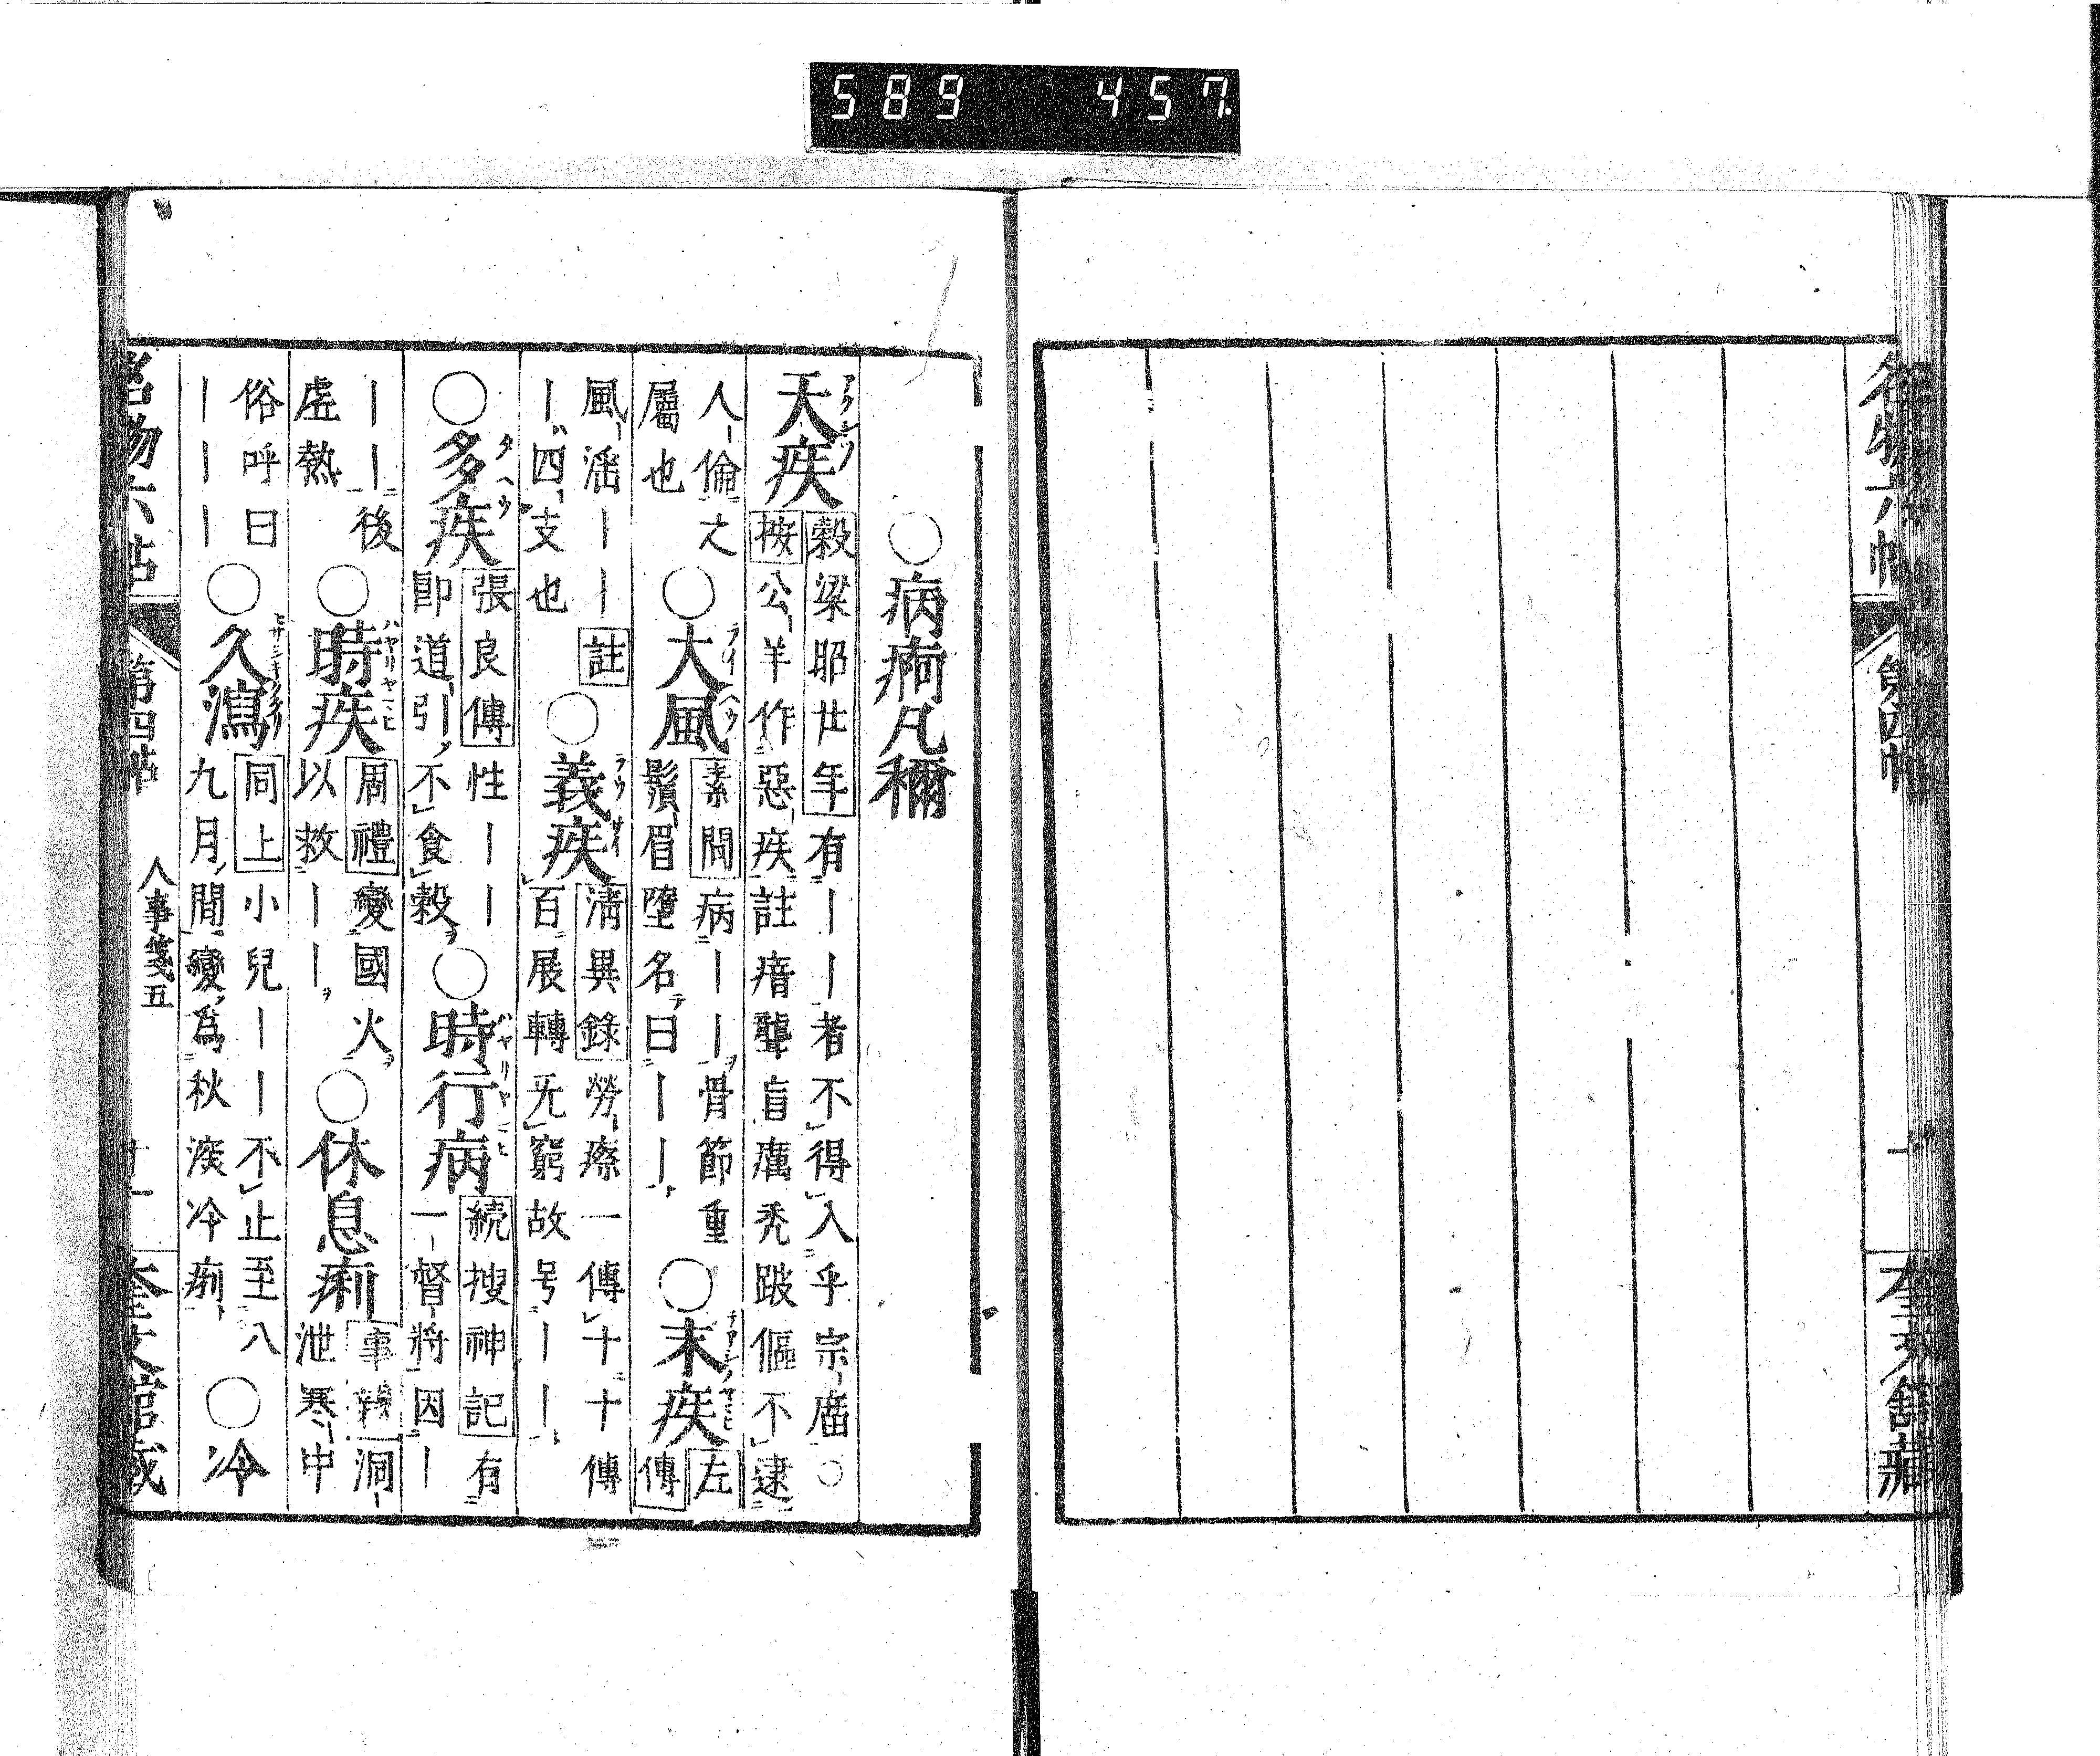 名物六帖 第四帖 奎文館藏
○病痾凡穪
天疾 穀梁昭廿年有｜｜者不得入乎宗庿○
按公羊作惡疾註瘖聾盲癘禿跛傴不逮
人倫之
屬也
○大風 素問病｜｜骨節重
鬚眉墮名曰｜｜
○末疾 左
傳
風淫｜｜註
｜四支也
○義疾 清異錄勞瘵一傳十十傳
百展轉无窮故号｜｜
○多疾 張良傳性｜｜
即道引不食穀
○時行病 続搜神記有
一督將因｜
｜｜後
虛熱
○時疾 周禮變國火
以救｜｜
○休息痢 事親洞
泄寒中
俗呼曰
｜｜｜
○久瀉 同上小兒｜｜不止至八
九月間變爲秋深冷痢
○冷
名物六帖 第四帖 人事箋五 十一 奎文館藏
589 457